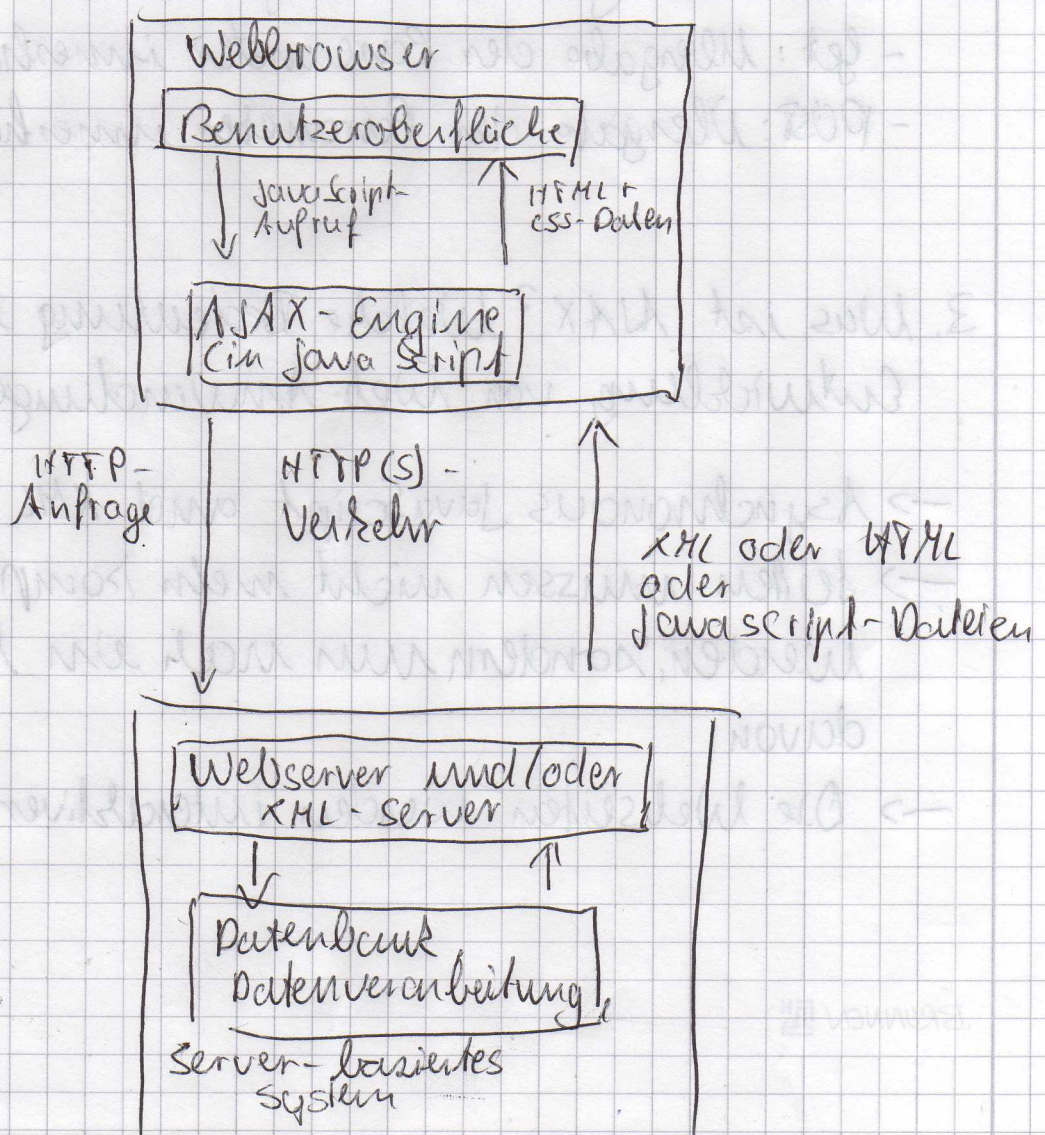 Webbrowser
Benutzeroberfläche
JavaScript-
Aufruf
HTML +
CSS-Daten
AJAX-Engine
(in Java Script
HTTP-
Anfrage
HTTP(S)-
Verkehr
XML oder HTML
oder
Javascript-Dateien
Webserver und/oder
XML-Server
Datenbank
Datenverarbeitung
Server-basiertes
System